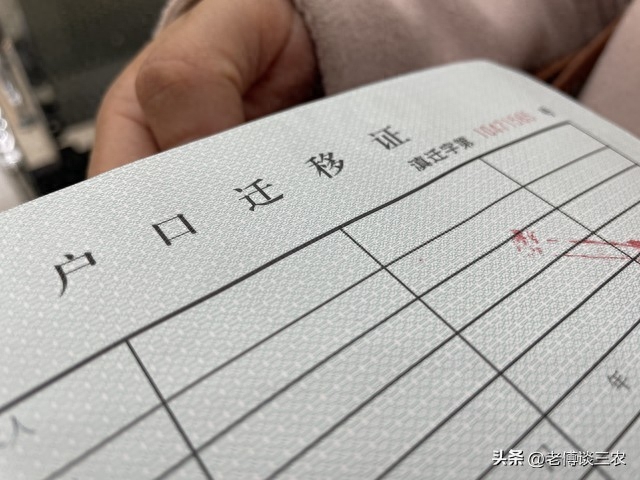 户口迁移证
滇迁字第 10471585 号
人
年
头条 @老傅谈三农